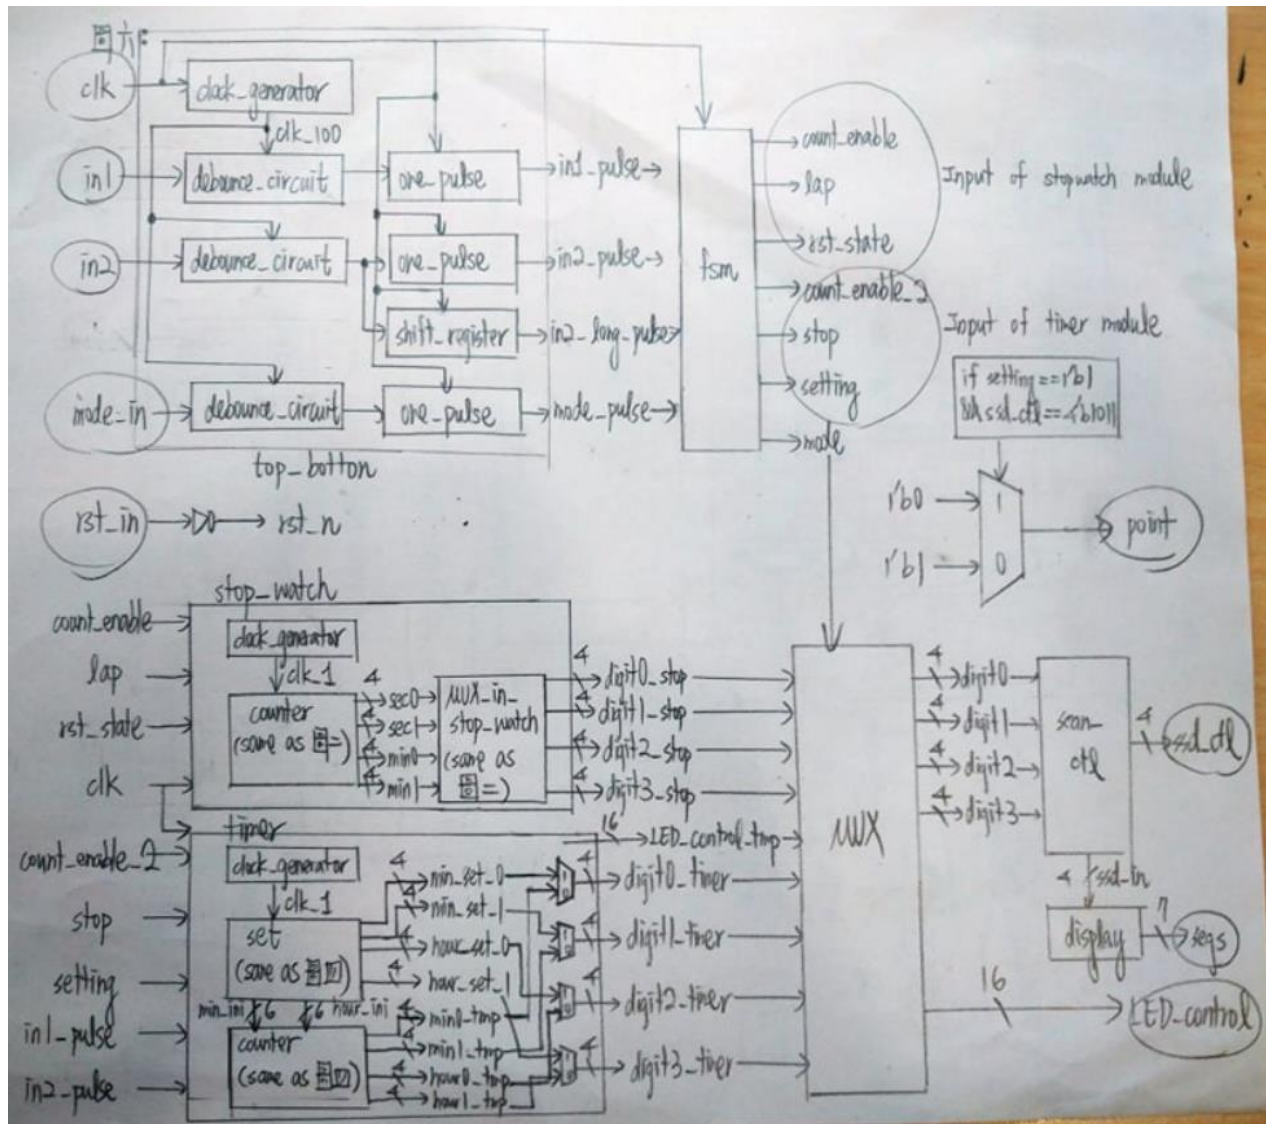 圖六:
clk
clock_generator
clk_100
in1
debounce_circuit
one_pulse
in1_pulse
in2
debounce_circuit
one_pulse
in2_pulse
shift_register
in2_long_pulse
mode_in
debounce_circuit
one_pulse
mode_pulse
top_botton
fsm
count_enable
lap
rst_state
count_enable_2
stop
setting
mode
Input of stopwatch module
Input of timer module
if setting==1'b1
&& ssd_ctl==4'b1011
1'b0
1
1'b1
0
point
rst_in
rst_n
stop_watch
count_enable
lap
rst_state
clk
clock_generator
clk_1
counter
(same as 圖二)
4
sec0
4
sec1
4
min0
4
min1
MUX_in_
stop_watch
(same as
圖二)
4
digit0_stop
4
digit1_stop
4
digit2_stop
4
digit3_stop
timer
count_enable_2
stop
setting
in1_pulse
in2_pulse
clock_generator
clk_1
set
(same as 圖四)
min_ini
6
6
hour_ini
counter
(same as 圖四)
4
min_set_0
4
min_set_1
4
hour_set_0
4
hour_set_1
4
min0_tmp
4
min1_tmp
4
hour0_tmp
4
hour1_tmp
16
LED_control_tmp
4
digit0_timer
4
digit1_timer
4
digit2_timer
4
digit3_timer
MUX
4
digit0
4
digit1
4
digit2
4
digit3
scan_
ctl
4
ssd_ctl
4
ssd_in
display
7
segs
16
LED_control